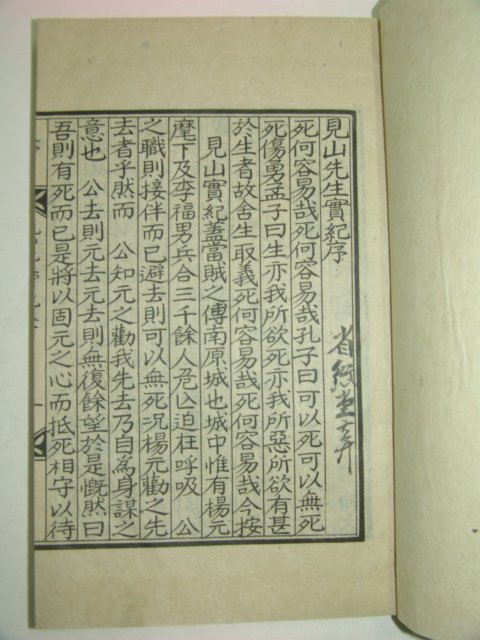 見山先生實紀序
死何容易哉死何容易哉孔子曰可以死可以無死
死傷勇孟子曰生亦我所欲死亦我所惡所欲有甚
於生者故舍生取義死何容易哉死何容易哉今按
見山實紀蓋當賊之傅南原城也城中惟有楊元
麾下及李福男兵合三千餘人危亡迫在呼吸 公
之職則接伴而已避去則可以無死況楊元勸之先
去者乎然而 公知元之勸我先去乃自為身謀之
意也 公去則元去元去則無復餘望於是慨然曰
吾則有死而已是將以固元之心而抵死相守以待